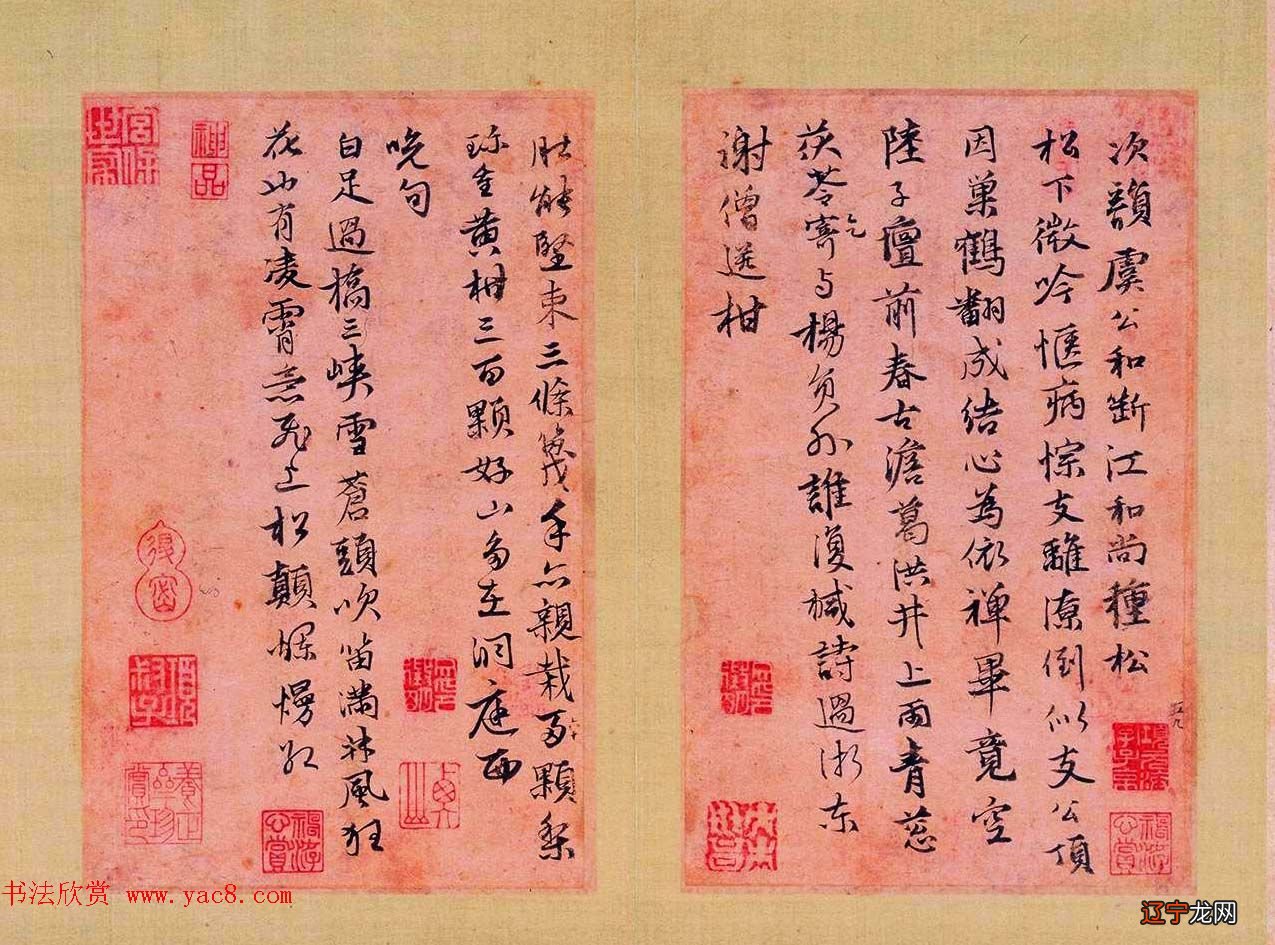 次韻虞公和断江和尚種松
松下微吟愜病悰支離潦倒似支公頂
因巢鶴翻成結心為依禪畢竟空
陸子壇前春古澹葛洪井上雨青葱
茯苓寄与楊負外誰復緘詩過浙东
乞
謝僧送柑
肚能堅束三條篾手亦親栽顆梨
珍重黄柑三百顆好山多在洞庭西
晚句
白足過橋三峽雪蒼頭吹笛满林風狂
花有凌霄意飛上松顛爛熳紅
神品
书法欣赏 www.yac8.com
辽宁龙网